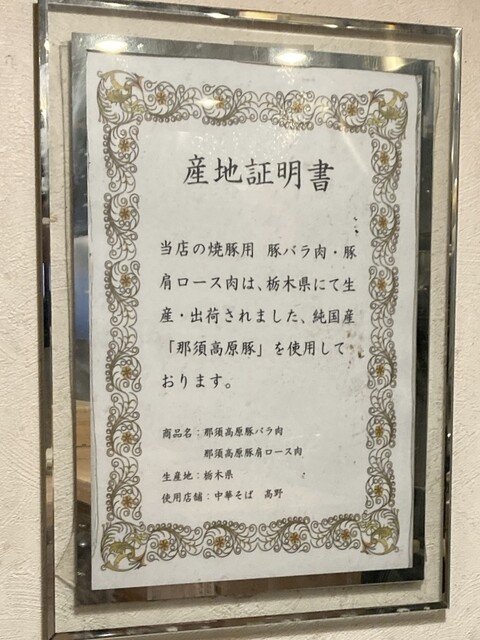 産地証明書
当店の焼豚用 豚バラ肉・豚
肩ロース肉は、栃木県にて生
産・出荷されました、純国産
「那須高原豚」を使用して
おります。
商品名：那須高原豚バラ肉
那須高原豚肩ロース肉
生産地：栃木県
使用店舗：中華そば 高野